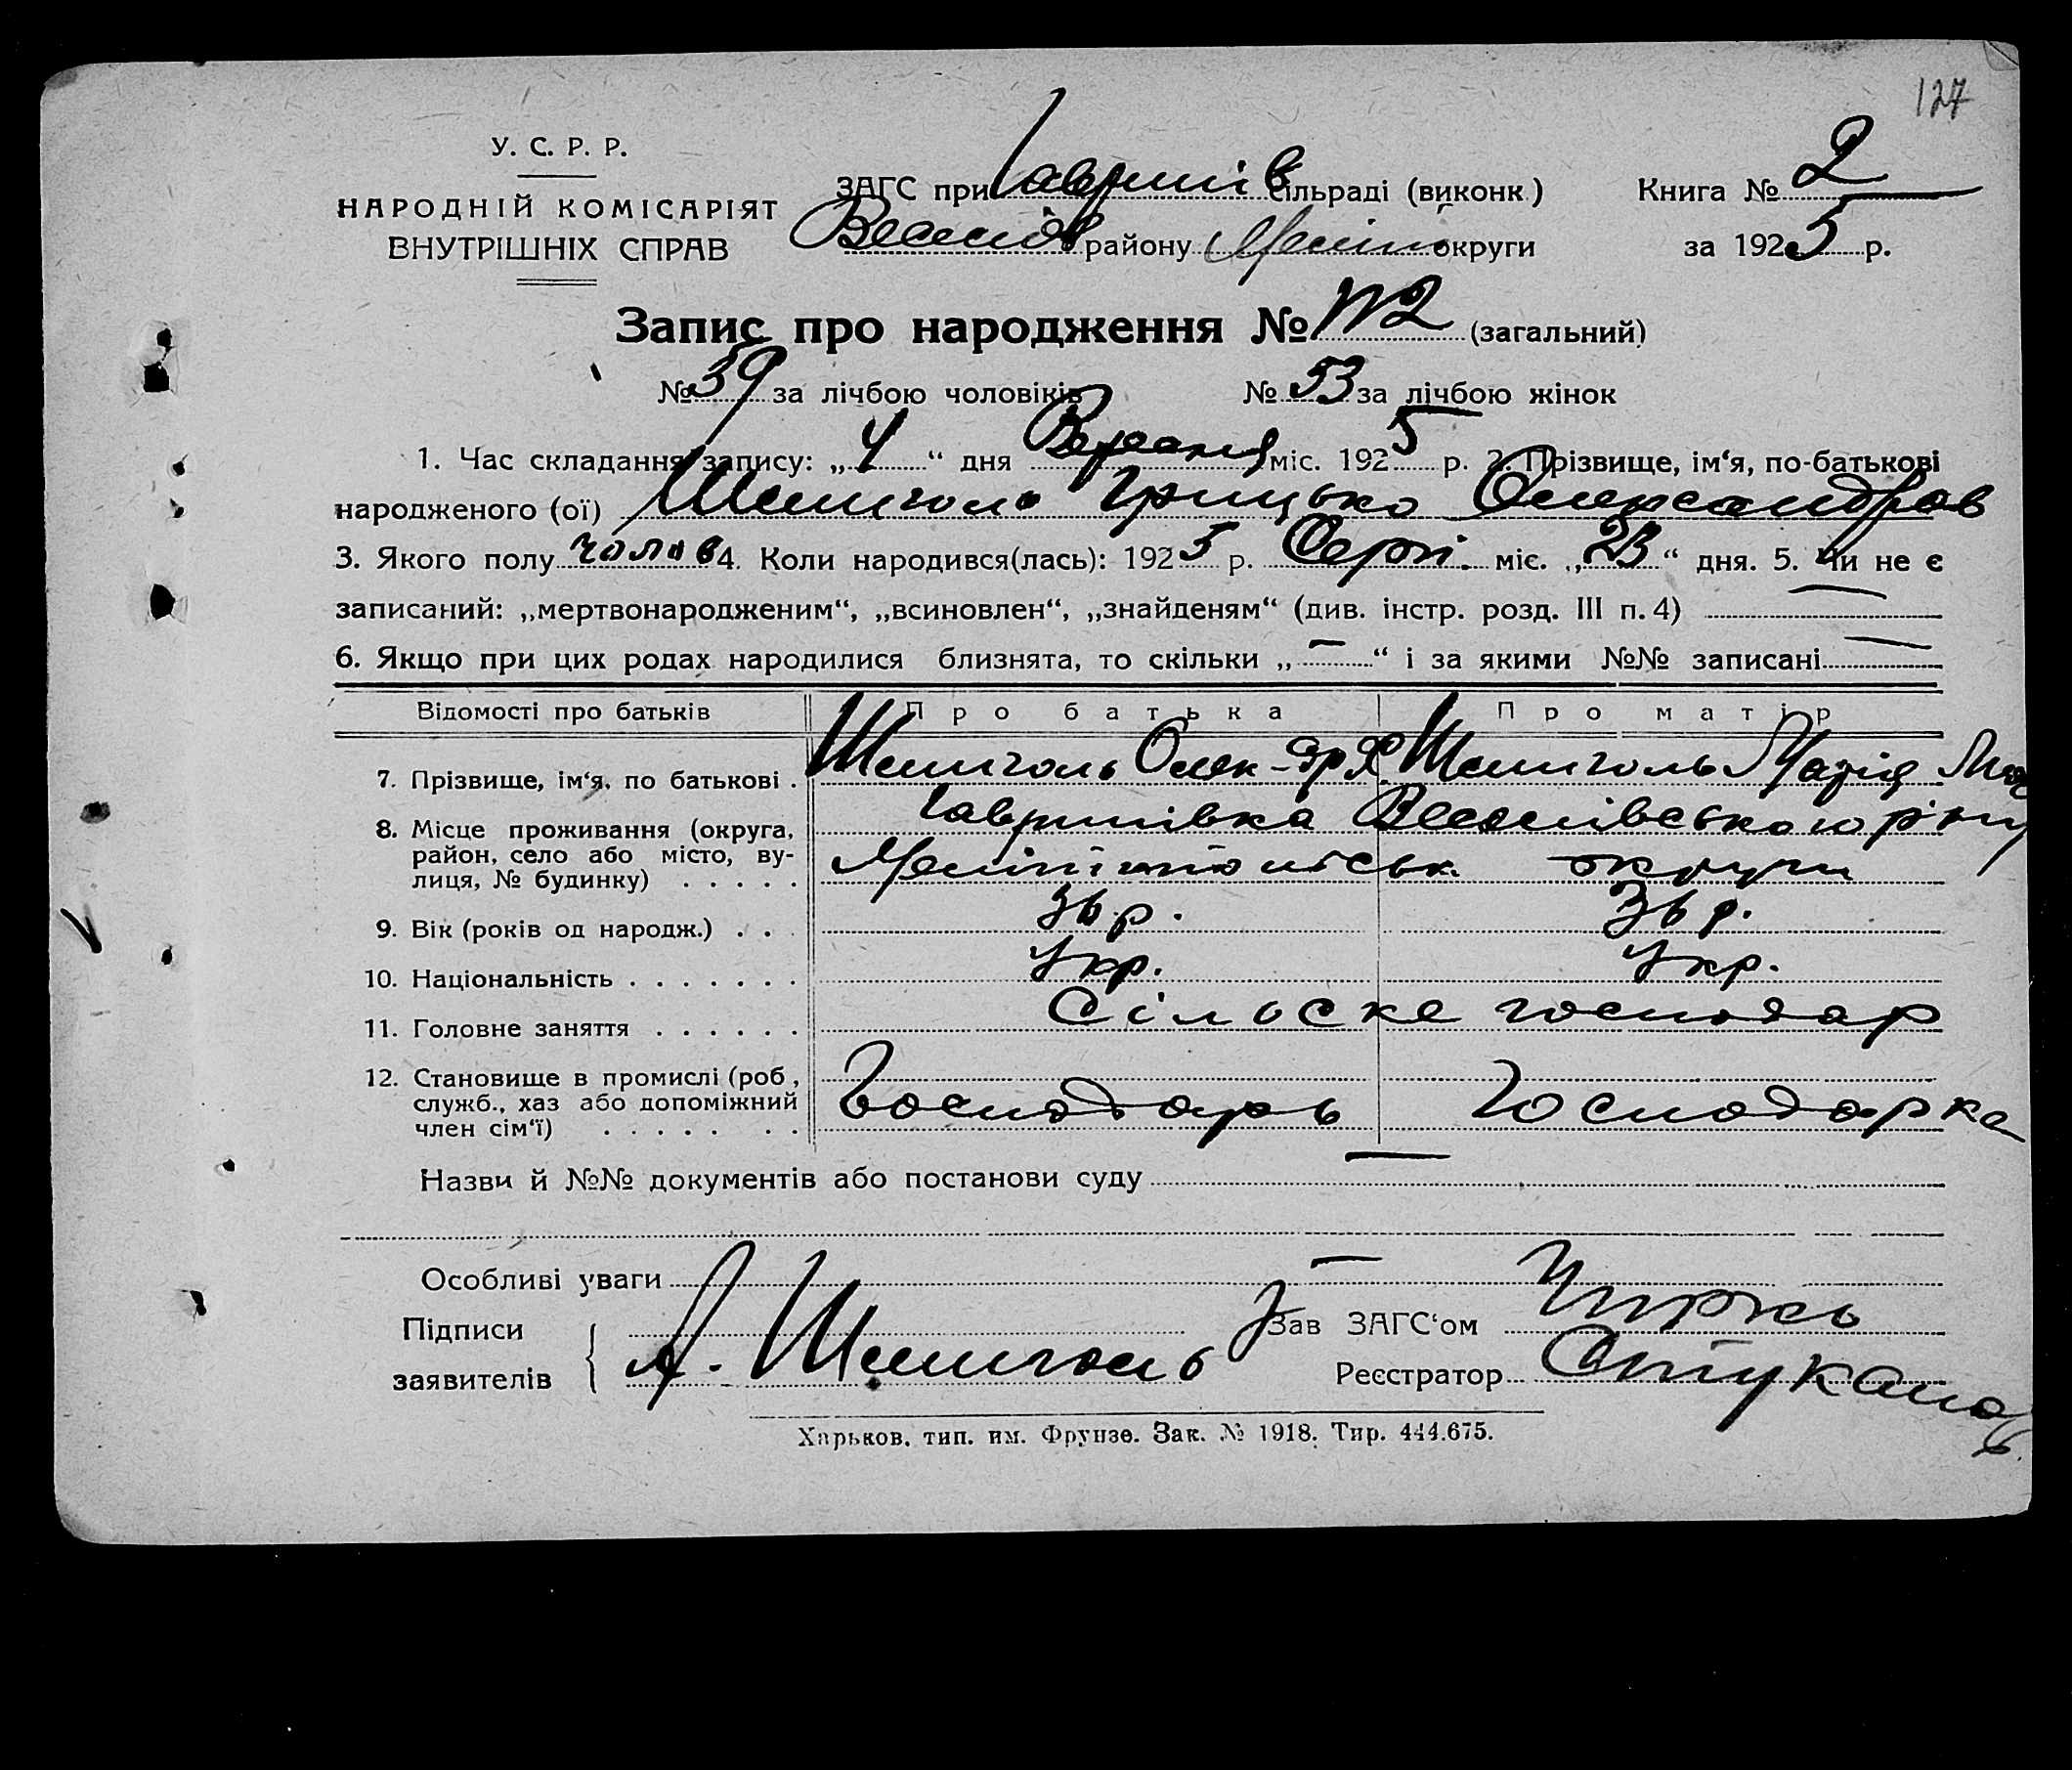 127
У. С. Р. Р.
НАРОДНІЙ КОМІСАРІЯТ
ВНУТРІШНІХ СПРАВ
ЗАГС при Гаврилів сільраді (виконк.) Книга № 2
Веселів району Меліт округи за 1925 р.
Запис про народження № (загальний)
№ 39 за лічбою чоловіків № 53 за лічбою жінок
1. Час складання запису: „4“ дня Вересня міс. 1925 р. 2. Прізвище, ім‘я, по-батькові
народженого (ої) Шемиголь Грицько Олександров
3. Якого полу чолов 4. Коли народився(лась): 1925 р. Серпі. міс. „ “ дня. 5. Чи не є
записаний: „мертвонародженим“, „всиновлен“, „знайденям“ (див. інстр. розд. III п. 4) —
6. Якщо при цих родах народилися близнята, то скільки „—“ і за якими №№ записані —
Відомості про батьків Про батька Про матір
7. Прізвище, ім‘я, по батькові . Шемиголь Олек-др Шемиголь Марія
8. Місце проживання (округа,
район, село або місто, ву-
лиця, № будинку) . . . . .
Гаврилівка Веселівського р-ну
Мелітопільськ. округи
9. Вік (років од народж.) . . . 36 р. 36 р.
10. Національність . . . . . . . Укр. Укр.
11. Головне заняття . . . . . . Сільске господар
12. Становище в промислі (роб.,
служб., хаз або допоміжний
член сім‘ї) . . . . . . .
Господарь Господарка
Назви й №№ документів або постанови суду —
Особливі уваги —
Підписи
заявителів
А. Шемиголь
Зав ЗАГС‘ом
Реєстратор
Харьков, тип. им. Фрунзе. Зак. № 1918. Тир. 444.675.